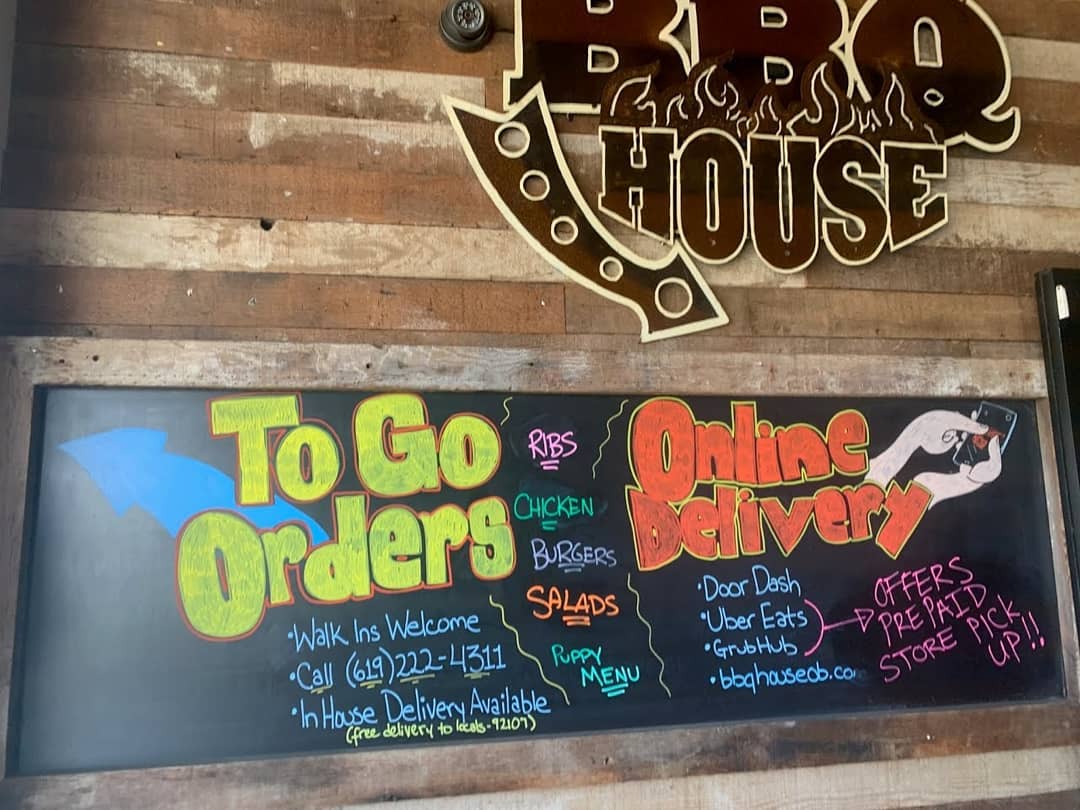 BBQ
HOUSE
To Go
Orders
•Walk Ins Welcome
•Call (619)222-4311
•In House Delivery Available
(free delivery to locals-92107)
RIBS
CHICKEN
BURGERS
SALADS
PUPPY
MENU
Online
Delivery
•Door Dash
•Uber Eats
•GrubHub
•bbqhouseob.co
OFFERS
PRE PAID
STORE PICK
UP!!